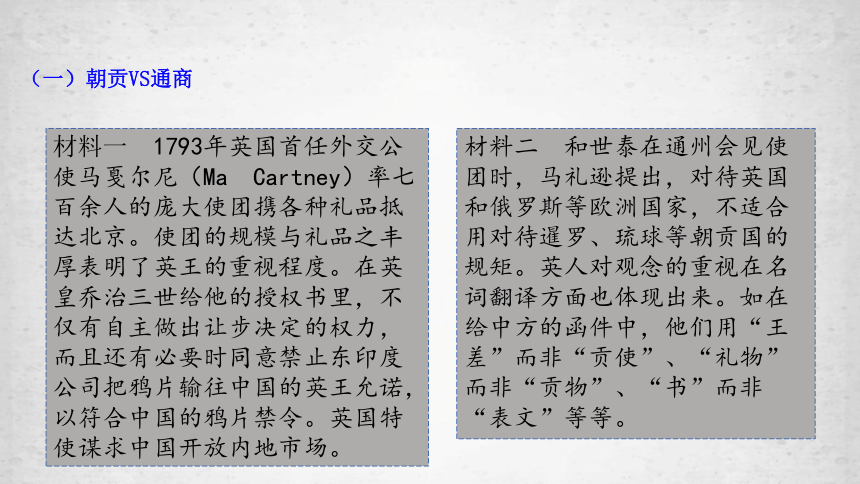 （一）朝贡VS通商
材料一　1793年英国首任外交公
使马戛尔尼（Ma　Cartney）率七
百余人的庞大使团携各种礼品抵
达北京。使团的规模与礼品之丰
厚表明了英王的重视程度。在英
皇乔治三世给他的授权书里，不
仅有自主做出让步决定的权力，
而且还有必要时同意禁止东印度
公司把鸦片输往中国的英王允诺，
以符合中国的鸦片禁令。英国特
使谋求中国开放内地市场。
材料二　和世泰在通州会见使
团时，马礼逊提出，对待英国
和俄罗斯等欧洲国家，不适合
用对待暹罗、琉球等朝贡国的
规矩。英人对观念的重视在名
词翻译方面也体现出来。如在
给中方的函件中，他们用“王
差”而非“贡使”、“礼物”
而非“贡物”、“书”而非
“表文”等等。